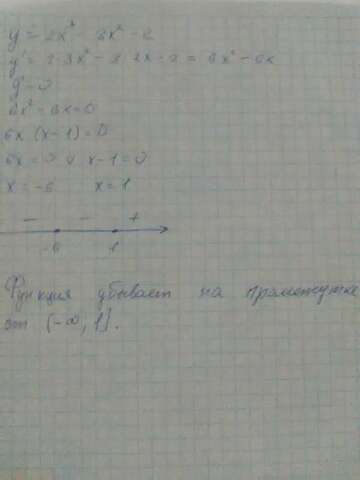 y = 2x³ - 3x² - 2
y' = 2·3x² - 3·2x - 0 = 6x² - 6x
y' = 0
6x² - 6x = 0
6x (x - 1) = 0
6x = 0 ∪ x - 1 = 0
x = -6 x = 1
- - +
-6 1
Функция убывает на промежутке
эт (-∞, 1].